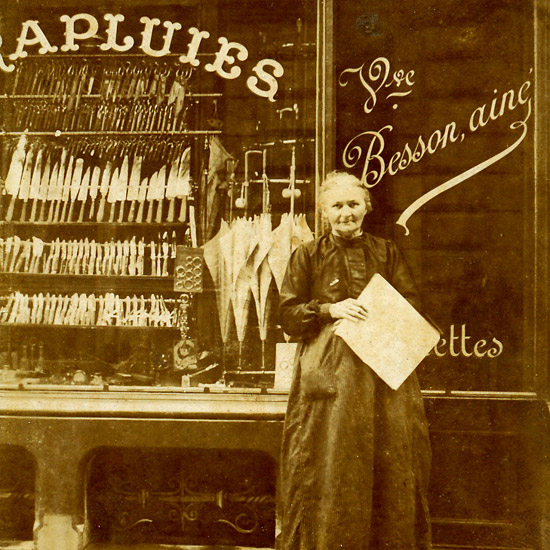 RAPLUIES
Vve
Besson, ainé
ettes